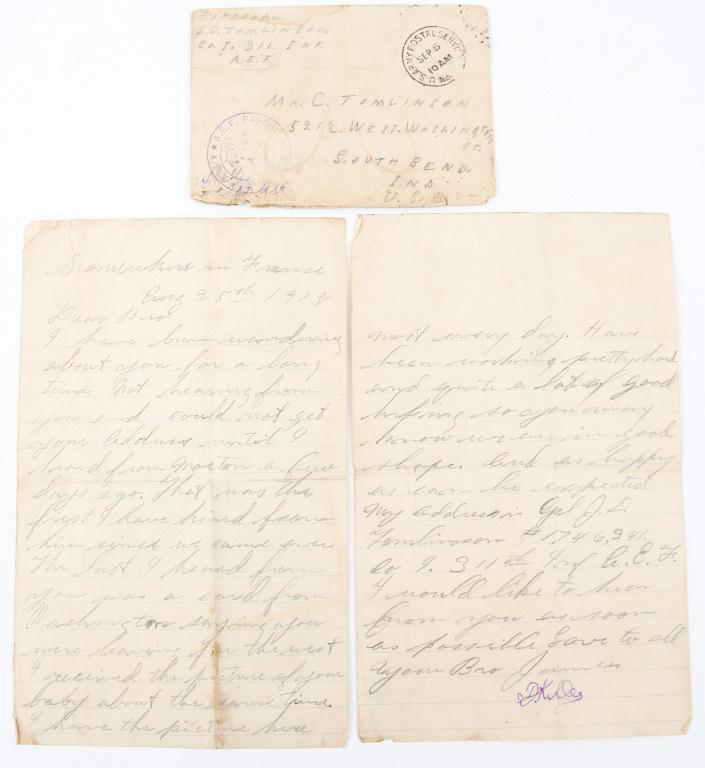 CORPORAL.
J.D. TOMLINSON.
CO. I. 311. INF.
A.E.F.
U.S. ARMY POSTAL SERVICE
SEP 5
10 AM
MR C. TOMLINSON
521½ WEST. WASHINGTON
ST.
SOUTH BEND.
IND
U.S.A
A.E.F. PASSED
Somewhere in France
Aug 25th 1918
Dear Bro
I have been wondering
about you for a long
time, Not hearing from
you and could not get
your address until I
heard from Morton a few
days ago. That was the
first I have heard from
him since we came over.
The last I heard from
you was a card from
Washington saying you
were leaving for the west
I received the picture of your
baby about the same time.
I have the picture here
most every day. Have
been working pretty hard
and quite a lot of good
hiking so you may
know we are in good
shape. And as happy
as can be expected
My address is Cpl J.D.
Tomlinson # 1,746,341.
Co I. 311th Inf A.E.F.
I would like to hear
from you as soon
as possible Love to all
Your Bro James